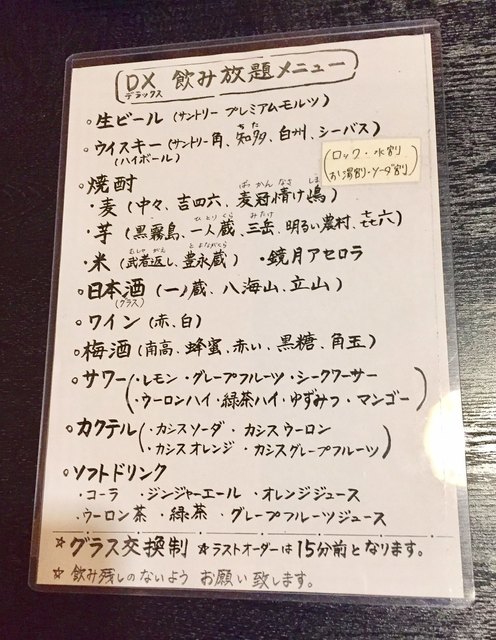 DX 飲み放題メニュー
デラックス
○生ビール(サントリー プレミアムモルツ)
○ウイスキー(サントリー角、知多、白州、シーバス)
ちた
(ハイボール)
(ロック・水割り
お湯割り・ソーダ割)
○焼酎
ばっかん なさ しま
・麦(中々、吉四六、麦冠情け嶋)
ひとり くら みたけ
・芋(黒霧島、一人蔵、三岳、明るい農村、㐂六)
むしゃ がえ とよながくら
・米(武者返し、豊永蔵) ・鏡月アセロラ
○日本酒(一ノ蔵、八海山、立山)
(グラス)
○ワイン(赤、白)
○梅酒(南高、蜂蜜、赤い、黒糖、角玉)
○サワー(・レモン・グレープフルーツ・シークワーサー
・ウーロンハイ・緑茶ハイ・ゆずみつ・マンゴー)
○カクテル(・カシスソーダ ・カシスウーロン
・カシスオレンジ ・カシスグレープフルーツ)
○ソフトドリンク
・コーラ ・ジンジャーエール ・オレンジジュース
・ウーロン茶 ・緑茶 ・グレープフルーツジュース
☆グラス交換制 ☆ラストオーダーは15分前となります。
☆飲み残しのないよう お願い致します。